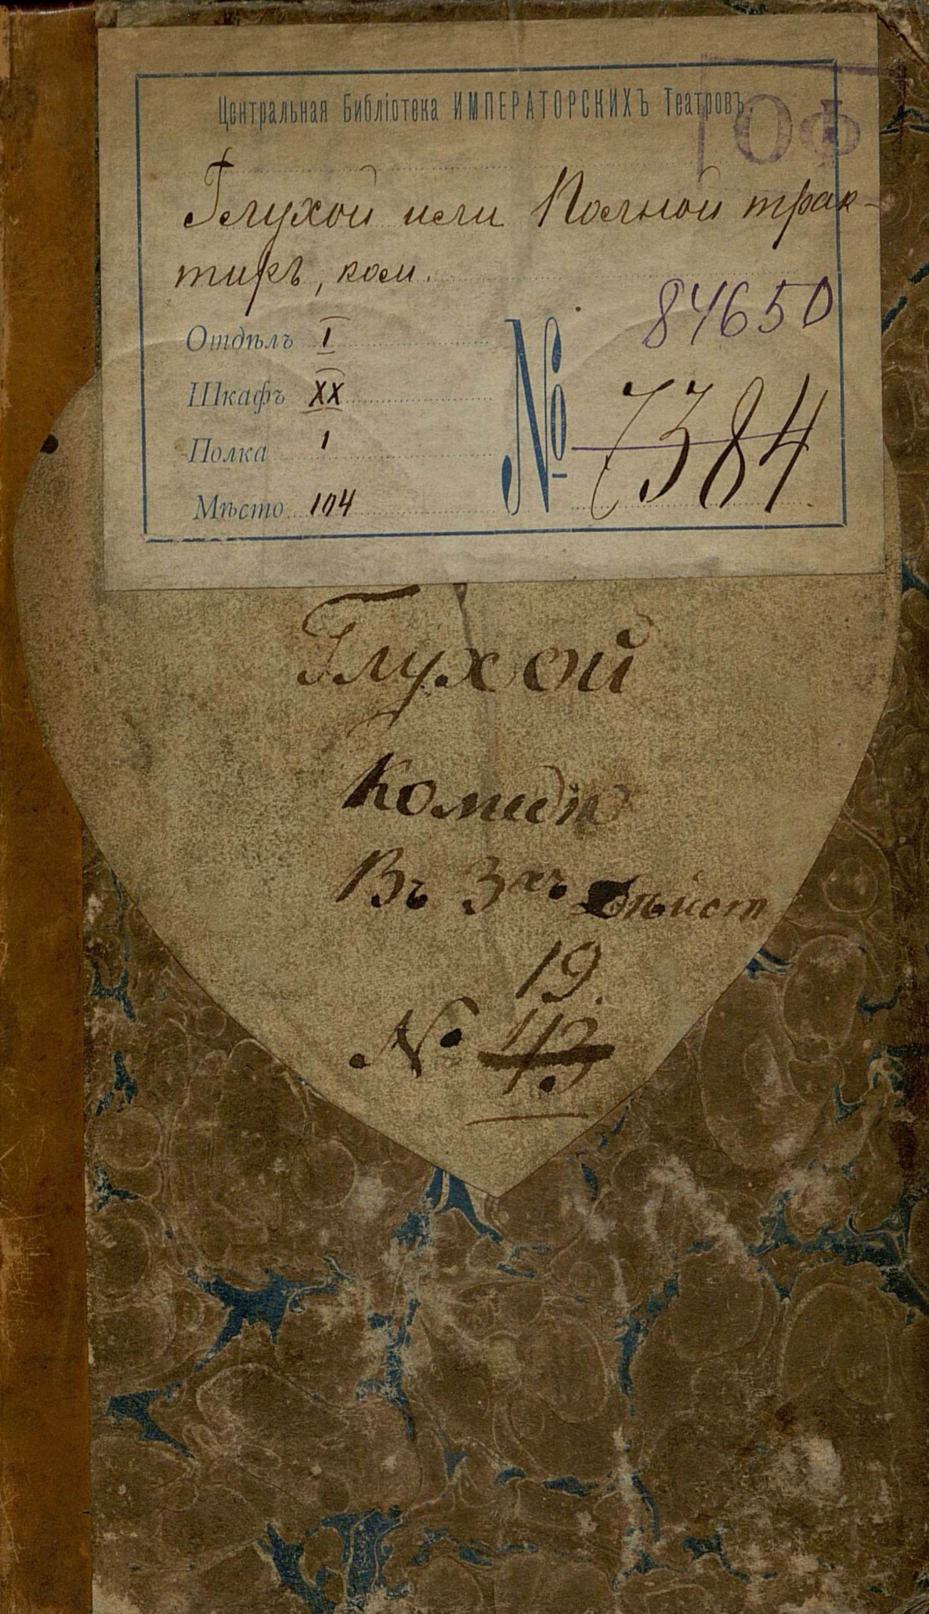 Центральная Библіотека ИМПЕРАТОРСКИХЪ Театровъ.
ОФ
Глухой или Полной трак-
тиръ, ком.
84650
Отдѣлъ I
Шкафъ XX
Полка 1
Мѣсто 104
№ 7384
Глухой
Комидїю
Въ 3хъ Дѣйст
19.
№ 43